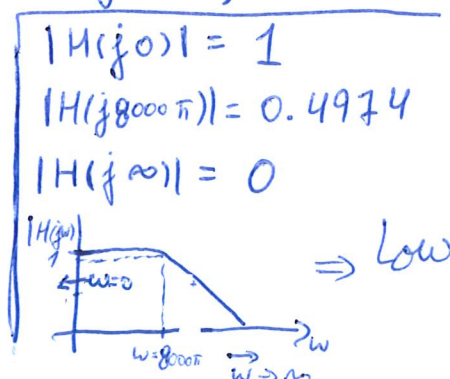 |H(j0)| = 1
|H(j8000π)| = 0.4974
|H(j∞)| = 0
|H(jω)|
1
ω=0
⇒ Low
ω=8000π
ω